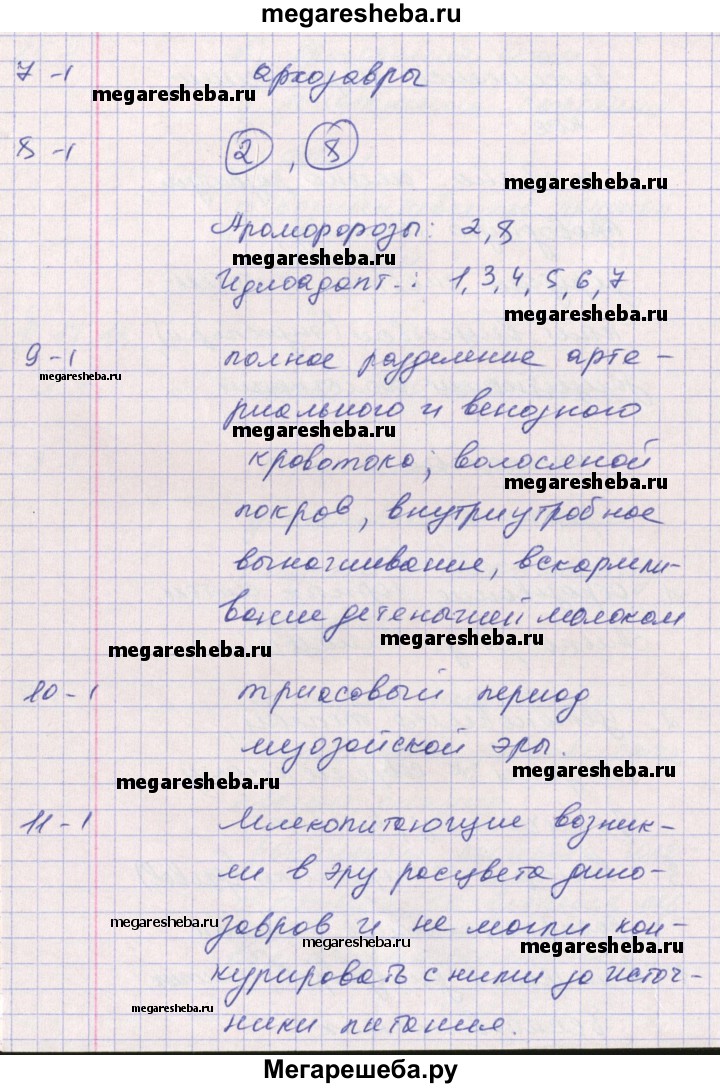 megaresheba.ru
7-1 архозавры
megaresheba.ru
8-1 2, 8
megaresheba.ru
Ароморозы: 2, 8
megaresheba.ru
Идиоадапт-: 1, 3, 4, 5, 6, 7
megaresheba.ru
9-1 полное разделение арте-
megaresheba.ru
риального и венозного
megaresheba.ru
кровотока; волосяной
megaresheba.ru
покров, внутриутробное
вынашивание, вскармли-
вание детенышей молоком
megaresheba.ru
megaresheba.ru
10-1 триасовый период
мезозойской эры.
megaresheba.ru
megaresheba.ru
11-1 Млекопитающие возник-
ли в эру расцвета дино-
megaresheba.ru
завров и не могли кон-
megaresheba.ru
megaresheba.ru
курировать с ними за источ-
megaresheba.ru
ники питания.
Мегарешеба.ру